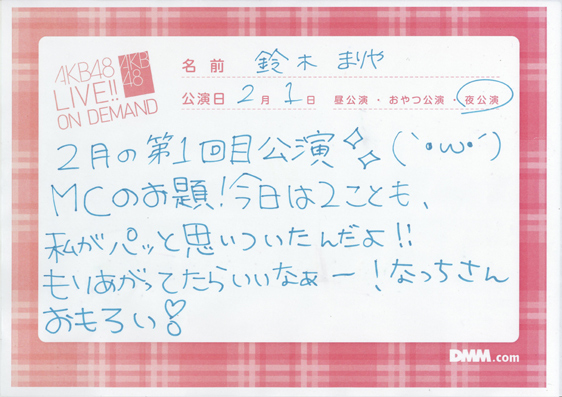 AKB48
LIVE!!
ON DEMAND
AKB
48
名前 鈴木 まりや
公演日 2月1日 昼公演・おやつ公演・夜公演
2月の第1回目公演✨(｀・ω・´)
MCのお題!今日は2ことも、
私がパッと思いついたんだよ!!
もりあがってたらいいなぁー!なっちさん
おもろい!
DMM.com